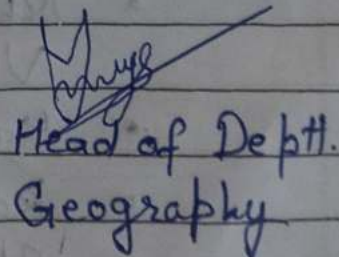 Head of Deptt.
Geography